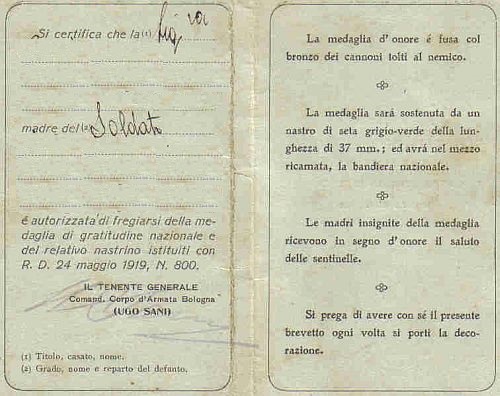 Si certifica che la (1) Sig ra
madre del (2) Soldato
é autorizzata di fregiarsi della me-
daglia di gratitudine nazionale e
del relativo nastrino istituiti con
R. D. 24 maggio 1919, N. 800.
IL TENENTE GENERALE
Comand. Corpo d'Armata Bologna
(UGO SANI)
(1) Titolo, casato, nome.
(2) Grado, nome e reparto del defunto.
La medaglia d'onore é fusa col
bronzo dei cannoni tolti al nemico.
La medaglia sará sostenuta da un
nastro di seta grigio-verde della lun-
ghezza di 37 mm.; ed avrá nel mezzo
ricamata, la bandiera nazionale.
Le madri insignite della medaglia
ricevono in segno d'onore il saluto
delle sentinelle.
Si prega di avere con sé il presente
brevetto ogni volta si porti la deco-
razione.